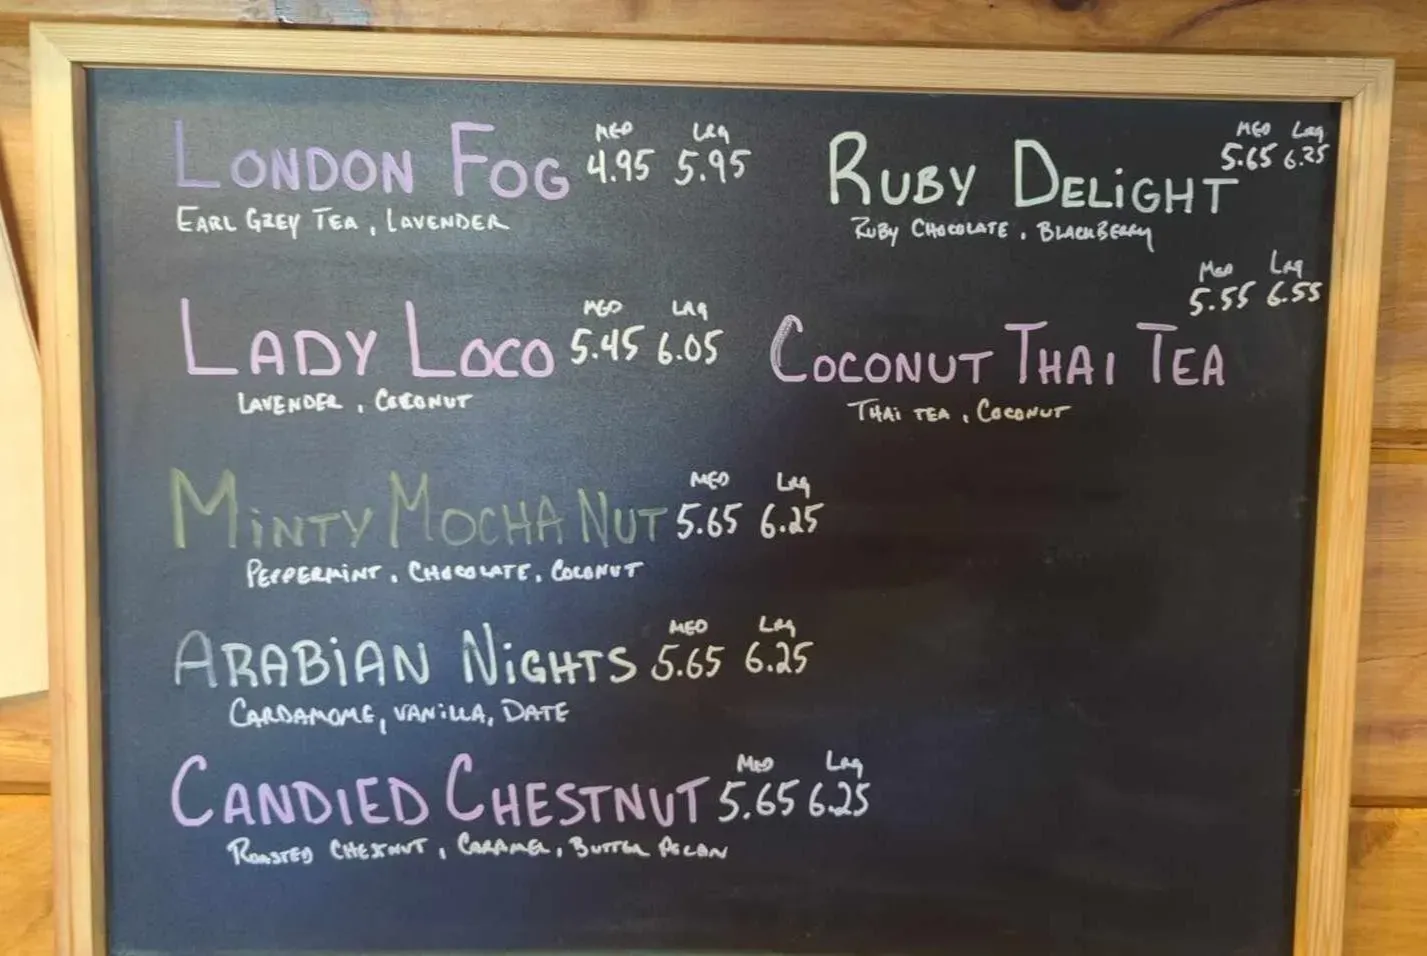 MED LRG
LONDON FOG 4.95 5.95
EARL GREY TEA, LAVENDER
MED LRG
LADY LOCO 5.45 6.05
LAVENDER, COCONUT
MED LRG
MINTY MOCHA NUT 5.65 6.25
PEPPERMINT, CHOCOLATE, COCONUT
MED LRG
ARABIAN NIGHTS 5.65 6.25
CARDAMOME, VANILLA, DATE
MED LRG
CANDIED CHESTNUT 5.65 6.25
ROASTED CHESTNUT, CARAMEL, BUTTER PECAN
MED LRG
RUBY DELIGHT 5.65 6.25
RUBY CHOCOLATE, BLACKBERRY
MED LRG
5.55 6.55
COCONUT THAI TEA
THAI TEA, COCONUT